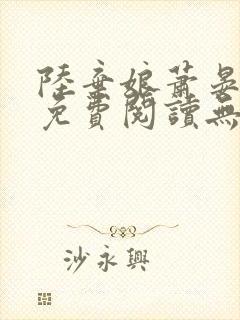 陸棄娘蕭晏
免費閱讀無
沙永興